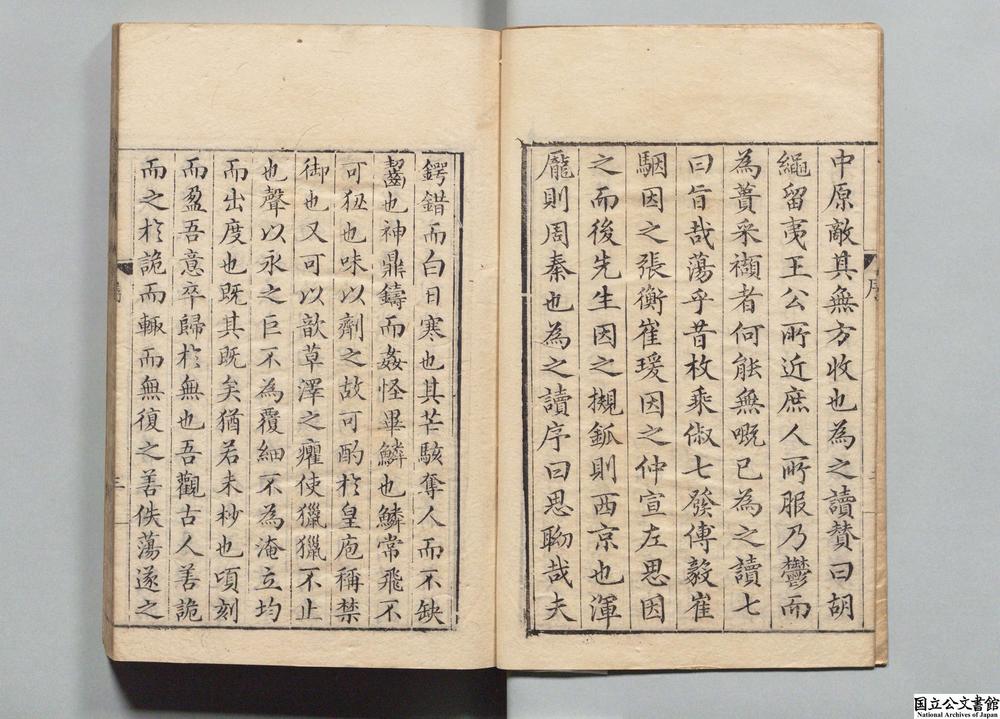 中原敵其無方收也為之讀贊曰胡
繩留夷王公所近庶人所服乃鬱而
為蕢采襭者何能無嘅已為之讀七
曰旨哉蕩乎昔枚乘俶七發傅毅崔
駰因之張衡崔瑗因之仲宣左思因
之而後先生因之摫鈲則西京也渾
厖則周秦也為之讀序曰思聉哉夫
序
鍔錯而白日寒也其芒駭奪人而不缺
齧也神鼎鑄而姦怪畢鱗也鱗常飛不
可狃也味以劑之故可酌於皇庖稱禁
御也又可以歆草澤之癯使獵獵不止
也聲以永之巨不為覆細不為淹立均
而出度也既其既矣猶若未杪也頃刻
而盈吾意卒歸於無也吾觀古人善詭
而之於詭而輙而無復之善佚蕩遂之
三
国立公文書館
National Archives of Japan